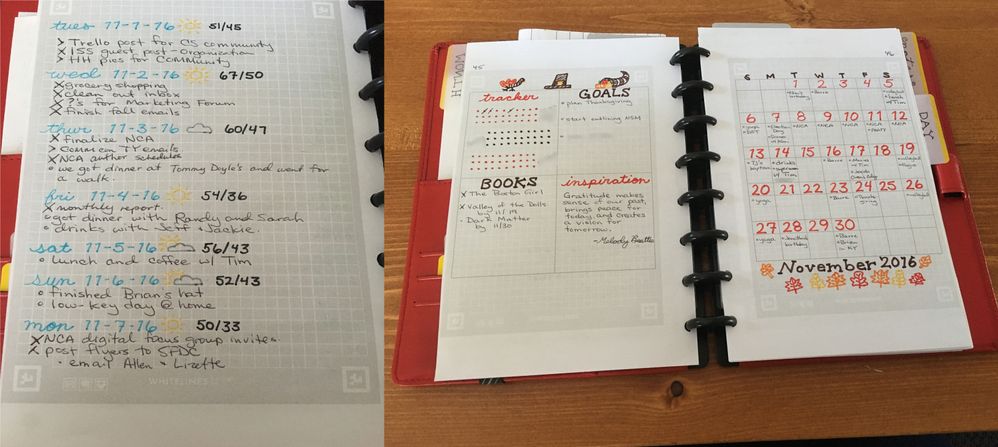 tues 11-1-16 51/45
> Trello post for CS community
X ISS guest post - Organization
> HH pics for Community
wed 11-2-16 67/50
X grocery shopping
X clean out inbox
X ?'s for Marketing Forum
X finish fall emails
thur 11-3-16 60/47
X finalize NCA
> Common TY emails
X NCA author schedules
• we got dinner at Tommy Doyle's and went for
a walk.
fri 11-4-16 54/36
X monthly report
• got dinner with Randy and Sarah
• drinks with Jeff + Jackie.
sat 11-5-16 56/43
• lunch and coffee w/ Tim
sun 11-6-16 52/43
• finished Brian's hat
• low-key day @ home
mon 11-7-16 50/33
X NCA digital focus group invites
X post flyers to SFDC
• email Allen • Lizette
WHITELINES
MONTH
45
tracker
GOALS
• plan Thanksgiving
• start outlining NSM
BOOKS
X The Boston Girl
X Valley of the Dolls
by 11/19
• Dark Matter
by 11/30
inspiration
Gratitude makes
sense of our past,
brings peace for
today, and creates
a vision for
tomorrow.
~Melody Beattie
46
DAY
S M T W T F S
1 2 3 4 5
• Barre
• lunch w/ Tim
6 7 8 9 10 11 12
• yoga
• DST
• Election Day
• NCA • NCA • NCA • NCA • NCA
• PARTY
13 14 15 16 17 18 19
• TJ's
• drinks
w/ Tim
• Barre
20 21 22 23 24 25 26
• yoga
• Barre
• Thanksgiving
27 28 29 30
• yoga
birthday
• Barre
• Brian in KY
November 2016